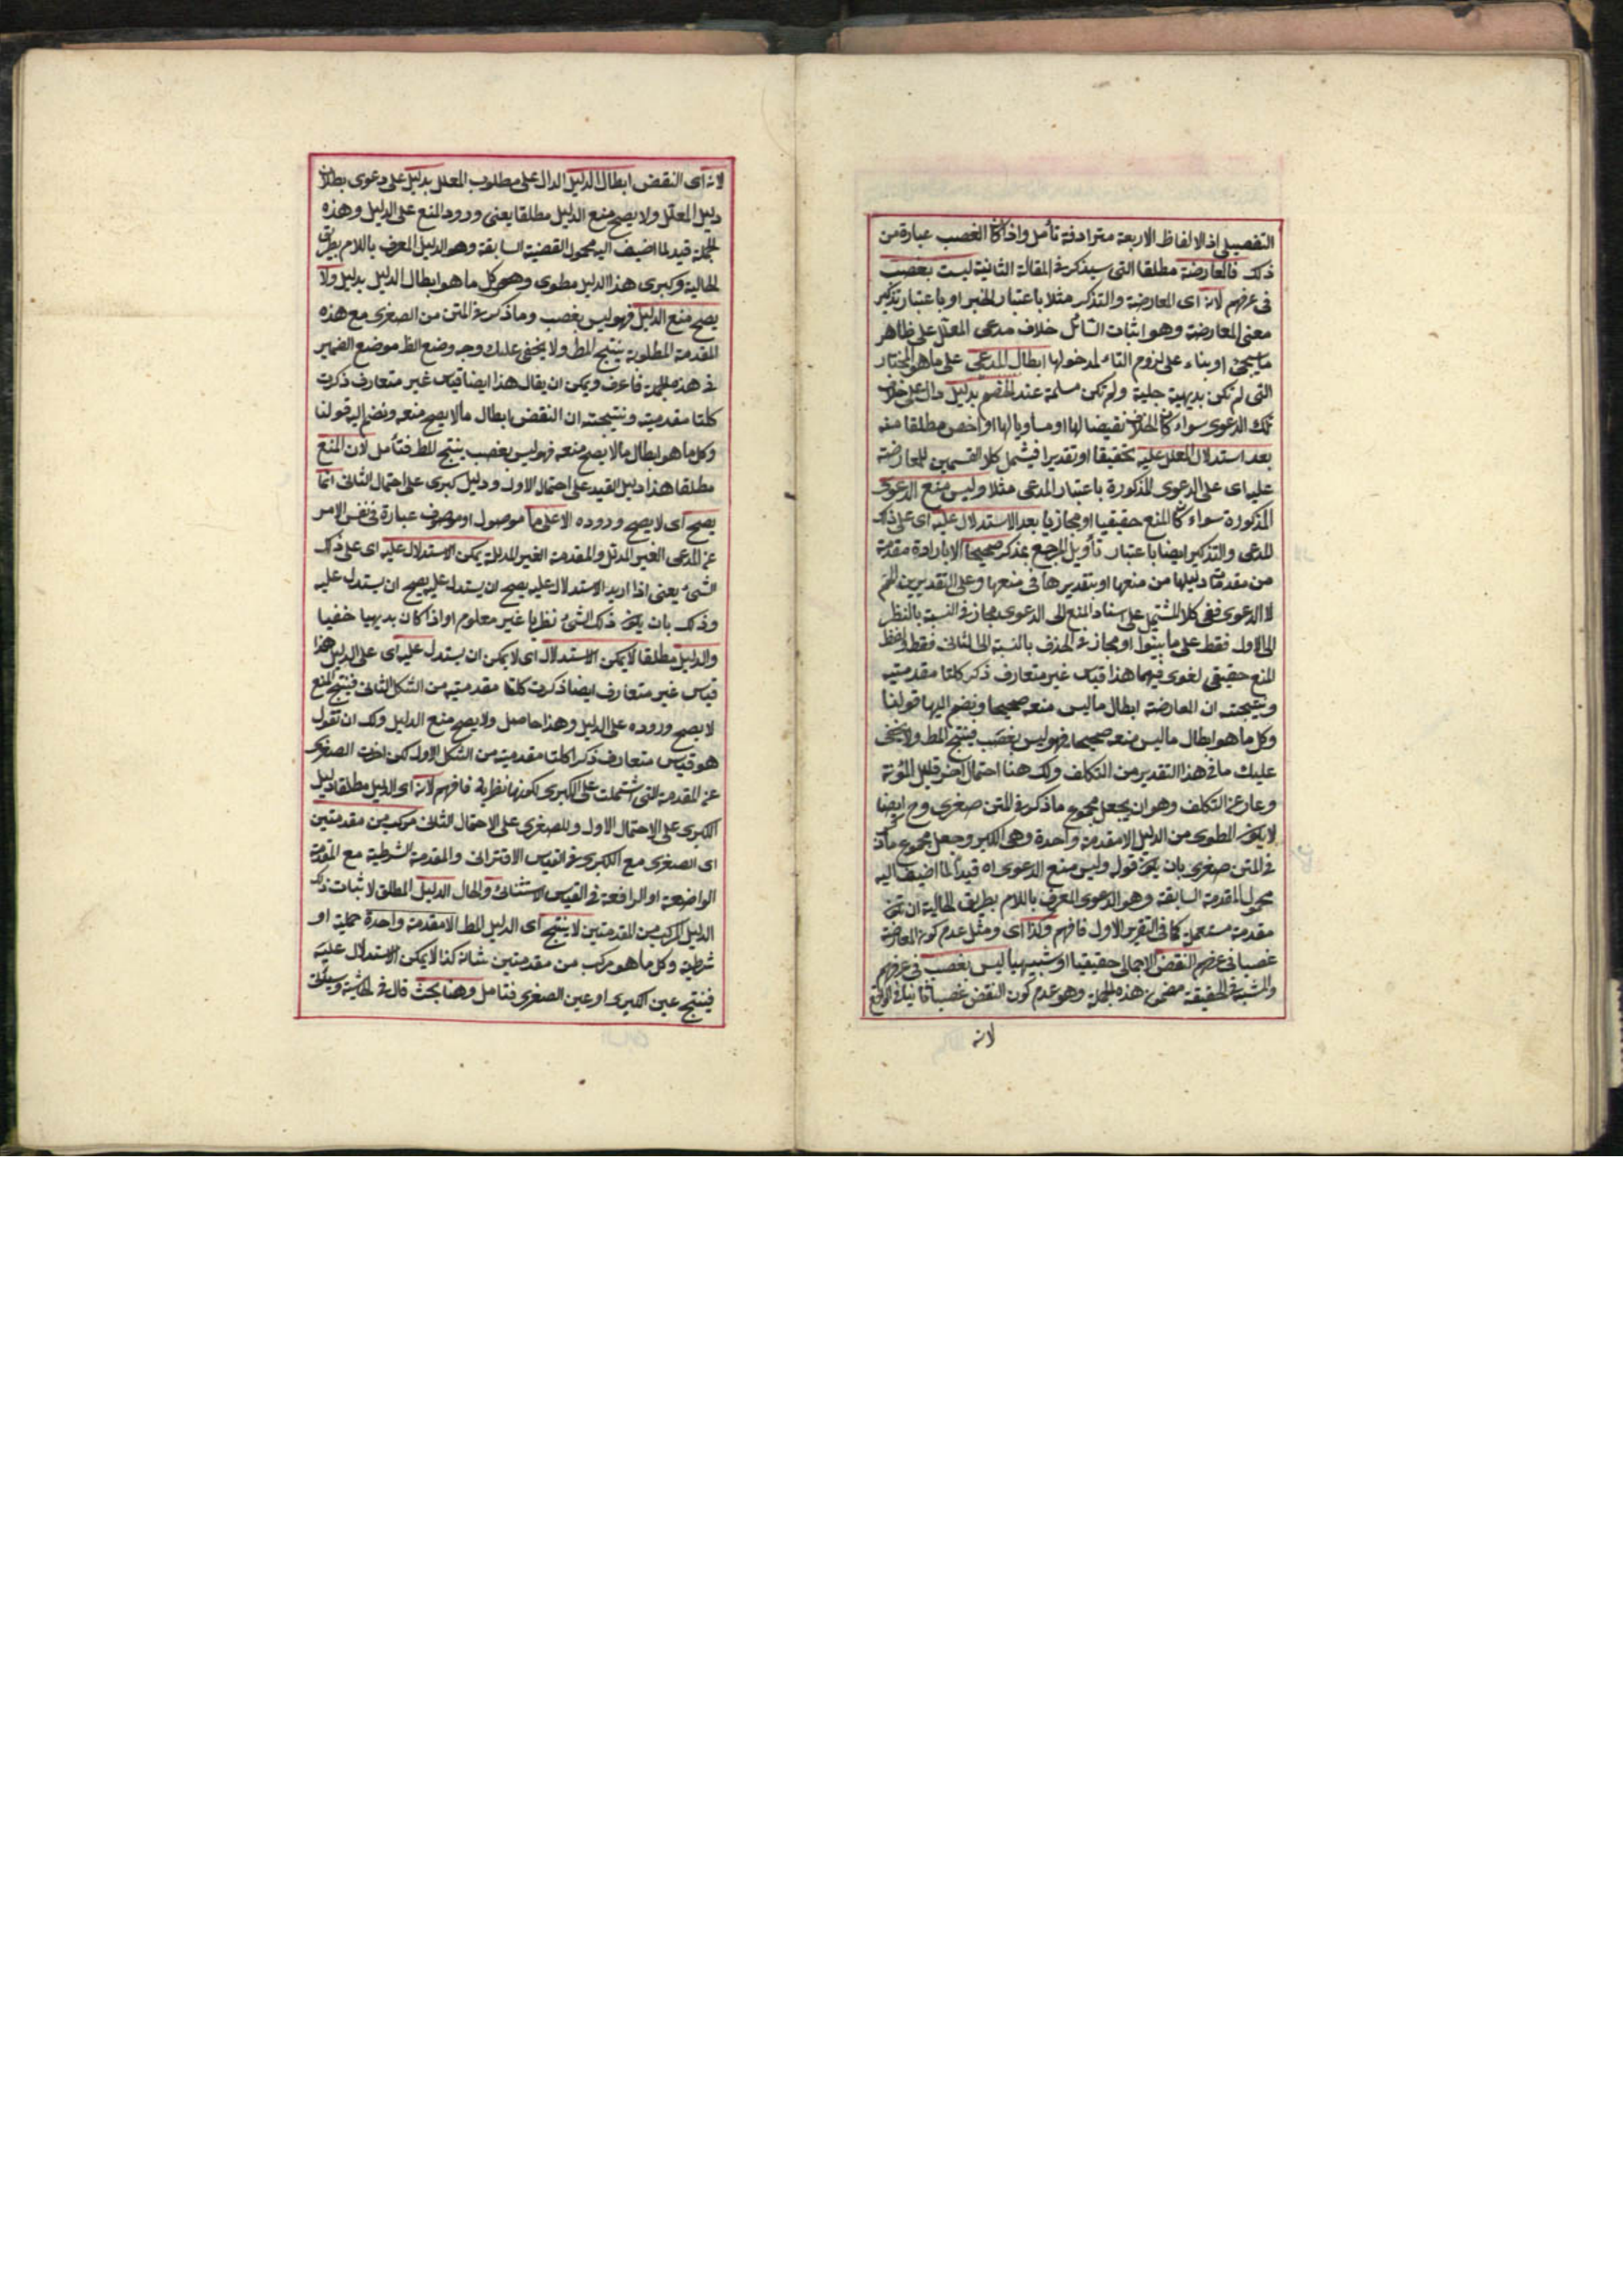 التفصيلى اذ الالفاظ الاربعة مترادفة تأمل واذا كان الغصب عبارة من
ذلك فالمعارضة مطلقا التى سيذكر فى المقالة الثانية ليست بغصب
فى عرفهم لانه اى المعارضة والتذكير مثلا باعتبار الخبر او باعتبار تذكير
معنى المعارضة وهو اثبات السائل خلاف مدعى المعلل على ظاهر
ما سيجئ او بناء على لزوم التاء لمدخولها ابطال المدعى على ما هو المختار
التى لم تكن بديهية جلية ولم تكن مسلمة عند الخصم بدليل دال على خلاف
تلك الدعوى سواء كان الخلاف نقيضا لها او مساويا لها او اخص مطلقا منه
بعد استدلال المعلل عليه تحقيقا او تقديرا فيشمل كلا القسمين للمعارضة
عليه اى على الدعوى المذكورة باعتبار المدعى مثلا وليس منع الدعوى
المذكورة سواء كان المنع حقيقيا او مجازيا بعد الاستدلال عليه اى على ذلك
المدعى والتذكير ايضا باعتبار تأويل المرجع بمذكر صحيحا الا بارادة مقدمة
من مقدمات دليلها من منعها او بتقديرها فى منعها وعلى التقديرين
لا الدعوى ففى كلا المشتمل على اسناد المنع الى الدعوى مجاز فى النسبة بالنظر
الى الاول فقط على ما بينوا او مجاز فى الحذف بالنسبة الى الثانى فقط ولفظ
المنع حقيقى لغوى فيهما هذا قياس غير متعارف ذكر كلتا مقدمتيه
ونتيجته ان المعارضة ابطال ما ليس منعه صحيحا ونضم اليها قولنا
وكل ما هو ابطال ما ليس منعه صحيحا فهو ليس بغصب فينتج المط ولا يخفى
عليك ما فى هذا التقدير من التكلف ولك هنا احتمال اخر قليل المؤنة
وعار عن التكلف وهو ان يجعل مجموع ما ذكر فى المتن صغرى وح ايضا
لا يكون المطوى من الدليل الا مقدمة واحدة وهى الكبر وجعل مجموع ما ذكر
فى المتن صغرى بان يكون قول وليس منع الدعوى اه قيدا لما اضيف اليه
محمول المقدمة السابقة وهو الدعوى المعرف باللام بطريق الحالية ان تكون
مقدمة مستعملة كما فى التقرير الاول فافهم وكذا اى ومثل عدم كون المعارضة
غصبا فى عرفهم النقض الاجمالى حقيقيا او شبيهيا ليس بغصب فى عرفهم
والمشبه فى الحقيقة مضمون هذه الجملة وهو عدم كون النقض غصبا
لانه
لانه اى النقض ابطال الدليل الدال على مطلوب المعلل بدليل على دعوى بطلان
دليل المعلل ولا يصح منع الدليل مطلقا يعنى ورود المنع على الدليل وهذه
الجملة قيد لما اضيف اليه محمول القضية السابقة وهو الدليل المعرف باللام بطريق
الحالية وكبرى هذا الدليل مطوى وهى كل ما هو ابطال الدليل بدليل ولا
يصح منع الدليل فهو ليس بغصب وما ذكر فى المتن من الصغرى مع هذه
المقدمة المطلوبة ينتج المط ولا يخفى عليك وجه وضع الظ موضع الضمير
فى هذه الجملة فاعرف ويمكن ان يقال هذا ايضا قياس غير متعارف ذكرت
كلتا مقدمتيه ونتيجته ان النقض بابطال ما لا يصح منعه ونضم اليه قولنا
وكل ما هو ابطال ما لا يصح منعه فهو ليس بغصب ينتج المط فتأمل لان المنع
مطلقا هذا دليل القيد على احتمال الاول ودليل كبرى على احتمال الثانى انما
يصح اى لا يصح وروده الا على ما موصول او موصوف عبارة فى نفس الامر
عن المدعى الغير المدلل والمقدمة الغير المدللة يمكن الاستدلال عليه اى على ذلك
الشئ يعنى اذا اريد الاستدلال عليه يصح ان يستدل عليه يصح ان يستدل عليه
وذلك بان يكون ذلك الشئ نظريا غير معلوم او اذا كان بديهيا خفيا
والدليل مطلقا لا يمكن الاستدلال اى لا يمكن ان يستدل عليه اى على الدليل هذا
قياس غير متعارف ايضا ذكرت كلتا مقدمتيه من الشكل الثانى فينتج المنع
لا يصح وروده على الدليل وهذا حاصل ولا يصح منع الدليل ولك ان تقول
هو قياس متعارف ذكر كلتا مقدمتيه من الشكل الاول لكن اخرت الصغرى
عن المقدمة التى اشتملت على الكبرى لكونها نظرية فافهم لانه اى الدليل مطلقا دليل
الكبرى على الاحتمال الاول وللصغرى على الاحتمال الثانى مركب من مقدمتين
اى الصغرى مع الكبرى فى القياس الاقترانى والمقدمة الشرطية مع المقدمة
الواضعة او الرافعة فى القياس الاستثنائى والحال الدليل المطلق لاثبات ذلك
الدليل المركب من المقدمتين لا ينتج اى الدليل المط الا مقدمة واحدة حملية او
شرطية وكل ما هو مركب من مقدمتين شانه كذا لا يمكن الاستدلال عليه
فينتج عين الكبرى او عين الصغرى فتامل وهنا بحث قال فى الحاشية